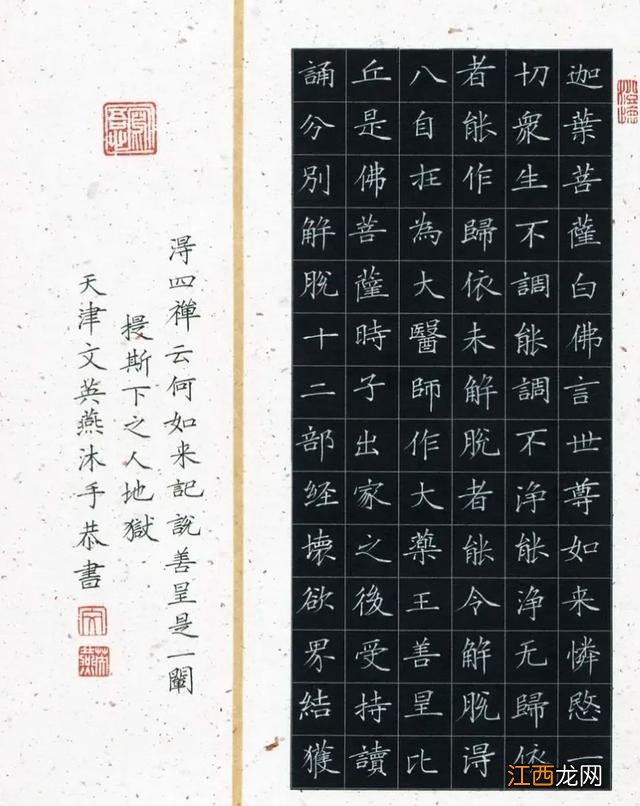 迦葉菩薩白佛言世尊如来憐愍一
切衆生不調能調不淨能淨无歸依
者能作歸依未解脫者能令解脫淂
八自在為大醫師作大藥王善星比
丘是佛菩薩時子出家之後受持讀
誦分別解脫十二部経壞欲界結獲
淂四禪云何如来記說善星是一闡
提斯下之人地獄
天津文英燕沐手恭書
江西龙网